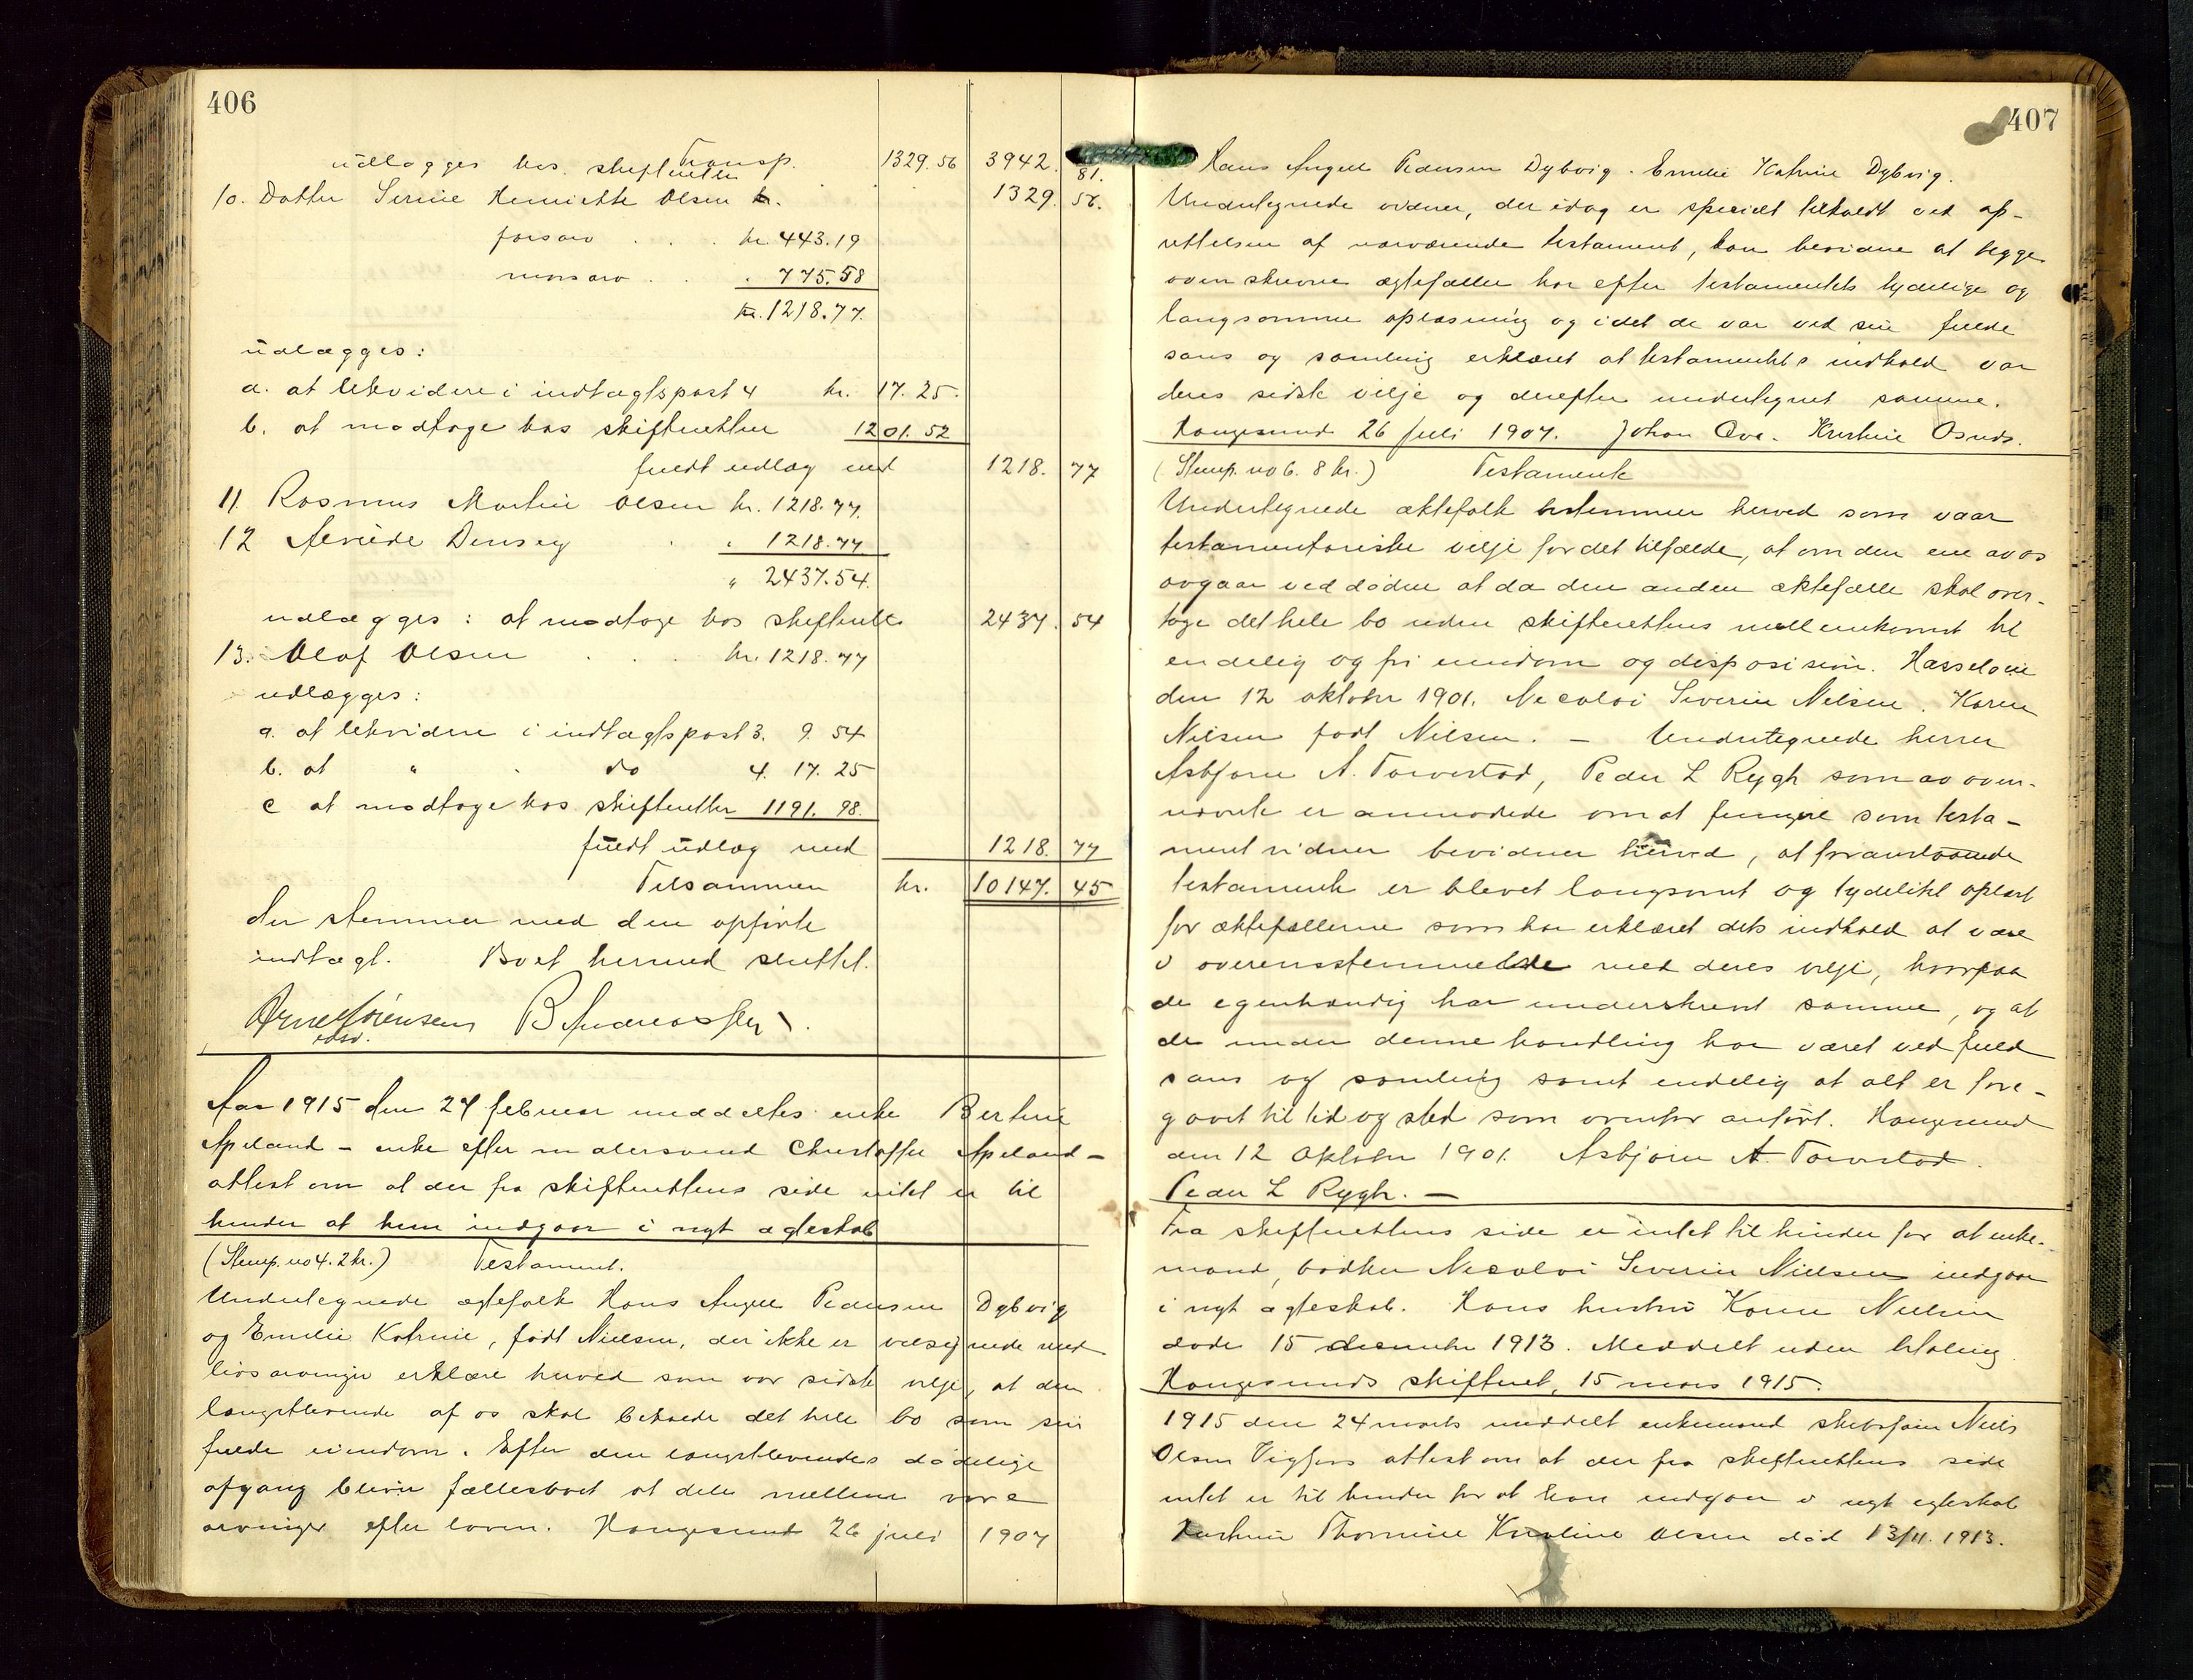 406
Transp. 1329.56 3942. 81.
udlægges hos skifteretten 1329. 56.
10. Datter Serine Henriette Olsen kr.
farsarv . . . kr. 443.19
morsarv . . . 775.58
kr. 1218.77.
udlægges:
a. at likvidere i indtægtspost 4 kr. 17.25.
b. at modtage hos skifteretten 1201.52
fuldt udlæg med 1218. 77
11. Rasmus Martin Olsen kr. 1218.77.
12 Densey " 1218.77
" 2437.54.
udlægges: at modtage hos skifterett. 2437. 54
13. Olaf Olsen . . . kr. 1218.77
udlægges:
a. at likvidere i indtægtspost 3. 9. 54
b. at " " do 4. 17. 25
c at modtage hos skifteretten 1191. 98.
fuldt udlæg med 1218. 77
Tilsammen kr. 10147. 45
der stemmer med den opførte
indtægt. Boet hermed sluttet.
Arne Sørensen B. Andreassen
edsv.
Aar 1915 den 24 februar meddeltes enke Bertine
Apeland – enke efter malersvend Christoffer Apeland –
attest om at der fra skifterettens side intet er til
hinder at hun indgaar i nyt ægteskab
(Stemp. no 4. 2 kr.) Testament.
Undertegnede ægtefolk Hans Angell Pedersen Dybvig
og Emilie Katrine, født Nielsen, der ikke er velsignede med
livsarvinger erklære herved som vor sidste vilje, at den
længstlevende af os skal beholde det hele bo som sin
fulde eiendom. Efter den længstlevendes dødelige
afgang bliver fællesboet at dele mellem vore
arvinger efter loven. Haugesund 26 juli 1907
407
Hans Angell Pedersen Dybvig. Emilie Katrine Dybvig.
Undertegnede vidner, der idag er specielt tilkaldt ved op-
rettelsen af nærværende testament, kan bevidne at begge
ovenskrevne ægtefæller har efter testamentets tydelige og
langsomme oplæsning og idet de var ved sin fulde
sans og samling erklæret at testamentets indhold var
deres sidste vilje og derefter undertegnet samme.
Haugesund 26 juli 1907. Johan Ove. Kristine Osnes.
(Stemp. no 6. 8 kr.) Testamente
Undertegnede ektefolk bestemmer herved som vaar
testamentariske vilje for det tilfælde, at om den ene av os
avgaar ved døden at da den anden ektefælle skal over-
tage det hele bo uden skifterettens mellemkomst til
endelig og fri eiendom og disposision. Hasseløen
den 12 oktober 1901. Necolai Severin Nilsen. Karen
Nilsen født Nilsen. – Undertegnede herrer
Asbjørn A. Torvestad, Peder L Rygh som av oven-
nævnte er anmodede om at fungere som testa-
mentvidner bevidner herved, at foranstaaende
testamente er blevet langsomt og tydelikt oplæst
for ektefællerne som har erklæret dets indhold at være
i overensstemmelse med deres vilje, hvorpaa
de egenhændig har underskrevet samme, og at
de under denne handling har været ved fuld
sans og samling samt endelig at alt er fore-
gaaet til tid og sted som ovenfor anført. Haugesund
den 12 Oktober 1901. Asbjørn A. Torvestad.
Peder L Rygh. –
Fra skifterettens side er intet til hinder for at enke-
mand, bødker Necolai Severin Nielsen indgaar
i nyt ægteskab. Hans hustru Karen Nielsen
døde 15 desember 1913. Meddelt uden betaling.
Haugesunds skifteret, 15 mars 1915.
1915 den 24 marts meddelt enkemand skibsfører Niels
Olsen Vigsnes attest om at der fra skifterettens side
intet er til hinder for at han indgaar i nyt egteskab
Hustruen Thomine Karoline Olsen død 13/11. 1913.